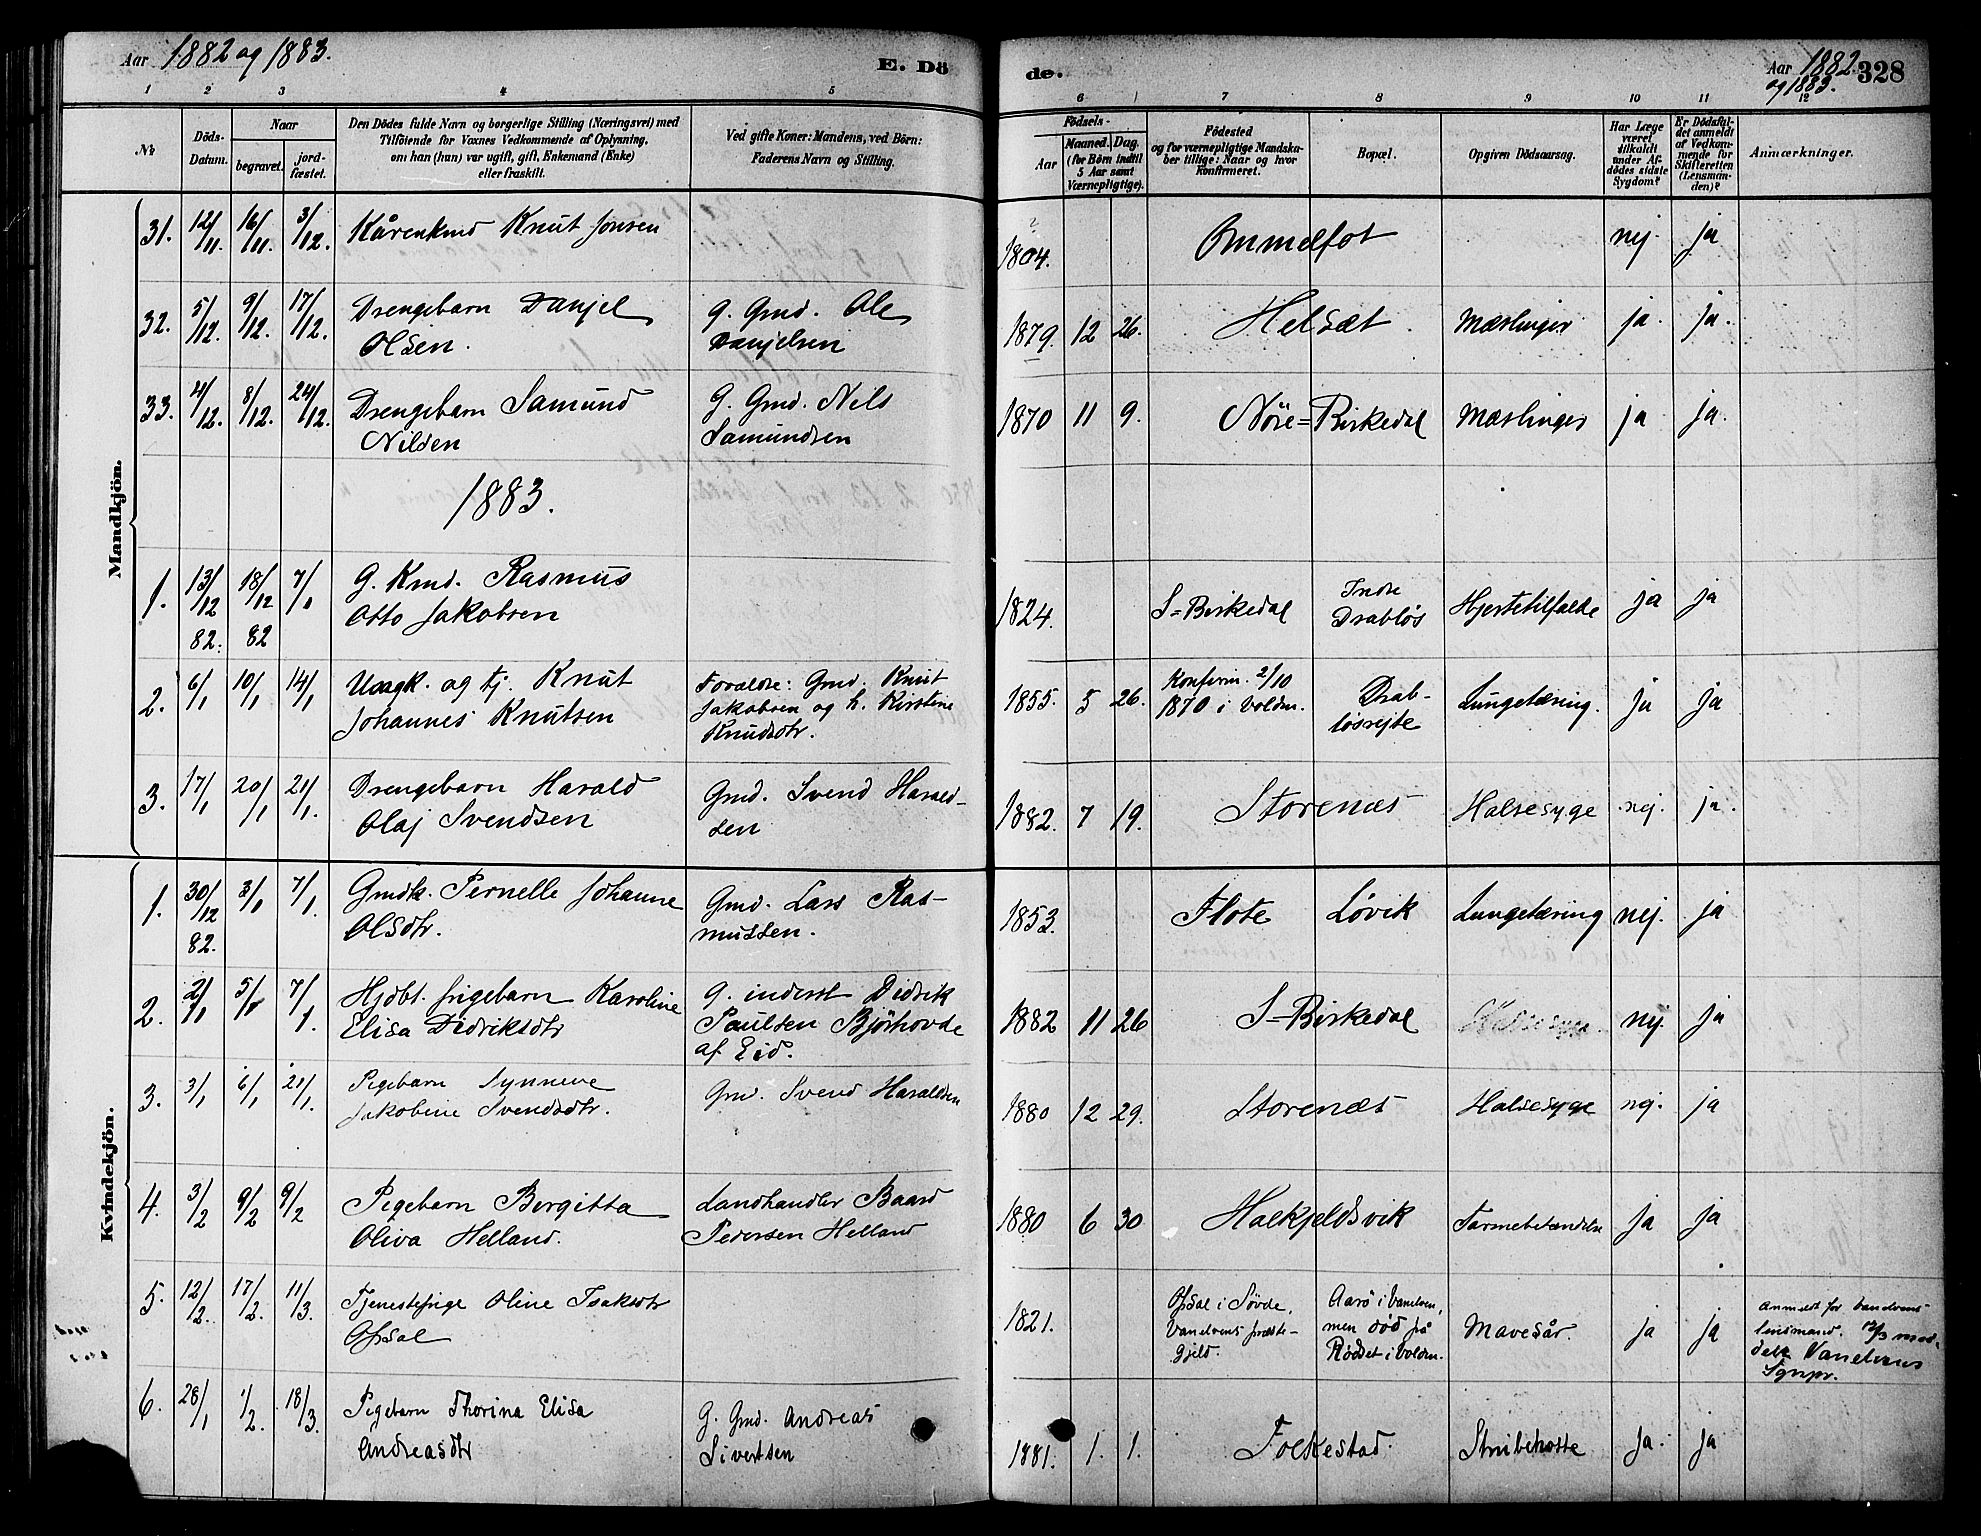 Aar 1882 og 1883.
E. Dö
de.
Aar 1882
og 1883.
328
1 2 3 4 5 6 7 8 9 10 11 12
No
Döds-
Datum.
Naar
begravet.
jord-
fæstet.
Den Dödes fulde Navn og borgerlige Stilling (Næringsvei) med
Tilföiende for Voxnes Vedkommende af Oplysning,
om han (hun) var ugift, gift, Enkemand (Enke)
eller fraskilt.
Ved gifte Koner: Mandens, ved Börn:
Faderens Navn og Stilling.
Födsels-
Aar
Maaned. Dag.
(for Börn indtil
5 Aar samt
Værnepligtige).
Födested
og for værnepligtige Mandska-
ber tillige: Naar og hvor
konfirmeret.
Bopæl.
Opgiven Dödsaarsag.
Har Læge
været
tilkaldt
under Af-
dödes sidste
Sygdom?
Er Dödsfal-
det anmeldt
af Vedkom-
mende for
Skifteretten
(Lensman-
den)?
Anmærkninger.
Mandkjön.
31. 12/11. 16/11. 3/12. Kårenkmd Knut Jonsen 1804. Ammelfot nej. ja
32. 5/12. 9/12. 17/12. Drengebarn Danjel g. Gmd. Ole 1879. 12 26. Helsæt. Mæslinger ja. ja.
Olsen. Danjelsen
33. 4/12. 8/12. 24/12. Drengebarn Samund G. Gmd. Nils 1870 11 9. Nöre=Birkedal Mæslinger ja ja.
Nilsen Samundsen
1883.
1. 13/12 82. 18/12 82 7/1 G. Kmd. Rasmus 1824. S=Birkedal Indre Drabløs Hjertetilfælde ja ja
Otto Jakobsen
2. 6/1 10/1 14/1 Ungk. og tj. Knut Forældre: Gmd. Knut 1855. 5 26. Konfirm. 2/10 Drab- Lungetæring. ja ja
Johannes Knutsen Jakobsen og h. Kirstine 1870 i Voldm. løsrejte
Knudsdtr.
3. 17/1 20/1 21/1. Drengebarn Harald Gmd. Svend Harald- 1882. 7 19. Storenæs Halsesyge nej. ja.
Olaj Svendsen sen
Kvindekjön.
1. 30/12 82. 3/1 7/1. Gmdk. Pernelle Johanne Gmd. Lars Ras- 1853. Flote Løvik Lungetæring nej. ja
Olsdtr. mussen.
2. 2/1 5/1 7/1. Hjdbt. pigebarn Karoline g. inderst Didrik 1882 11 26 S=Birkedal Halsesyge. nej. ja
Elisa Didriksdtr Paulsen Bjørhovde
af Eid.
3. 3/1 6/1 21/1. Pigebarn Synneve Gmd. Svend Haraldsen 1880 12 29. Storenæs Halsesyge nej. ja
Jakobine Svendsdtr.
4. 3/2 9/2 9/2 Pigebarn Bergitta Landhandler Baard 1880 6 30 Halkjeldsvik Tarmebetændelse ja ja
Oliva Helland. Pedersen Helland
5. 12/2. 17/2. 11/3 Tjenestepige Oline Isaksdtr 1821. Ofsal i Søvde, Aarö i Vanelven, Mavesår. ja ja Anmeldt for Vanelvens
Ofsal Vanelvens præste- men död på lensmand. 12/3 med-
gjeld. Röddet i Voldm. delt Vanelvens
Sgnpr.
6. 28/1 1/2. 18/3. Pigebarn Thorina Elisa G. Gmd. Andreas 1881. 1. 1. Folkestad. Strubehoste ja. ja
Andreasdtr Sivertsen